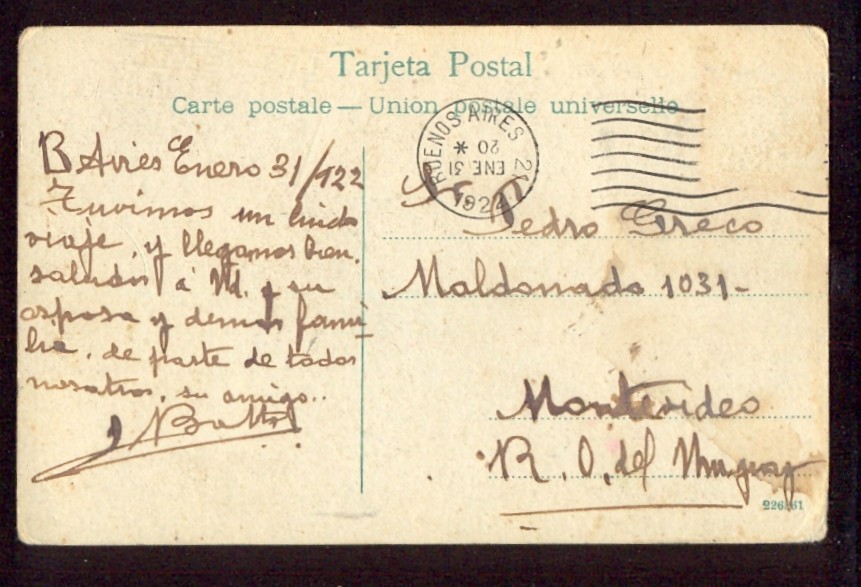 Tarjeta Postal
Carte postale — Union postale universelle
BUENOS AIRES 21
ENE 31
20 *
B Aires Enero 31/922
Tuvimos un lindo
viaje, y llegamos bien.
saludos á Ud. y su
esposa y demas fami-
lia. de parte de todos
nosotros, su amigo..
Sr. D.
Pedro Greco
Maldonado 1031-
Montevideo
R. O. del Uruguay
226161